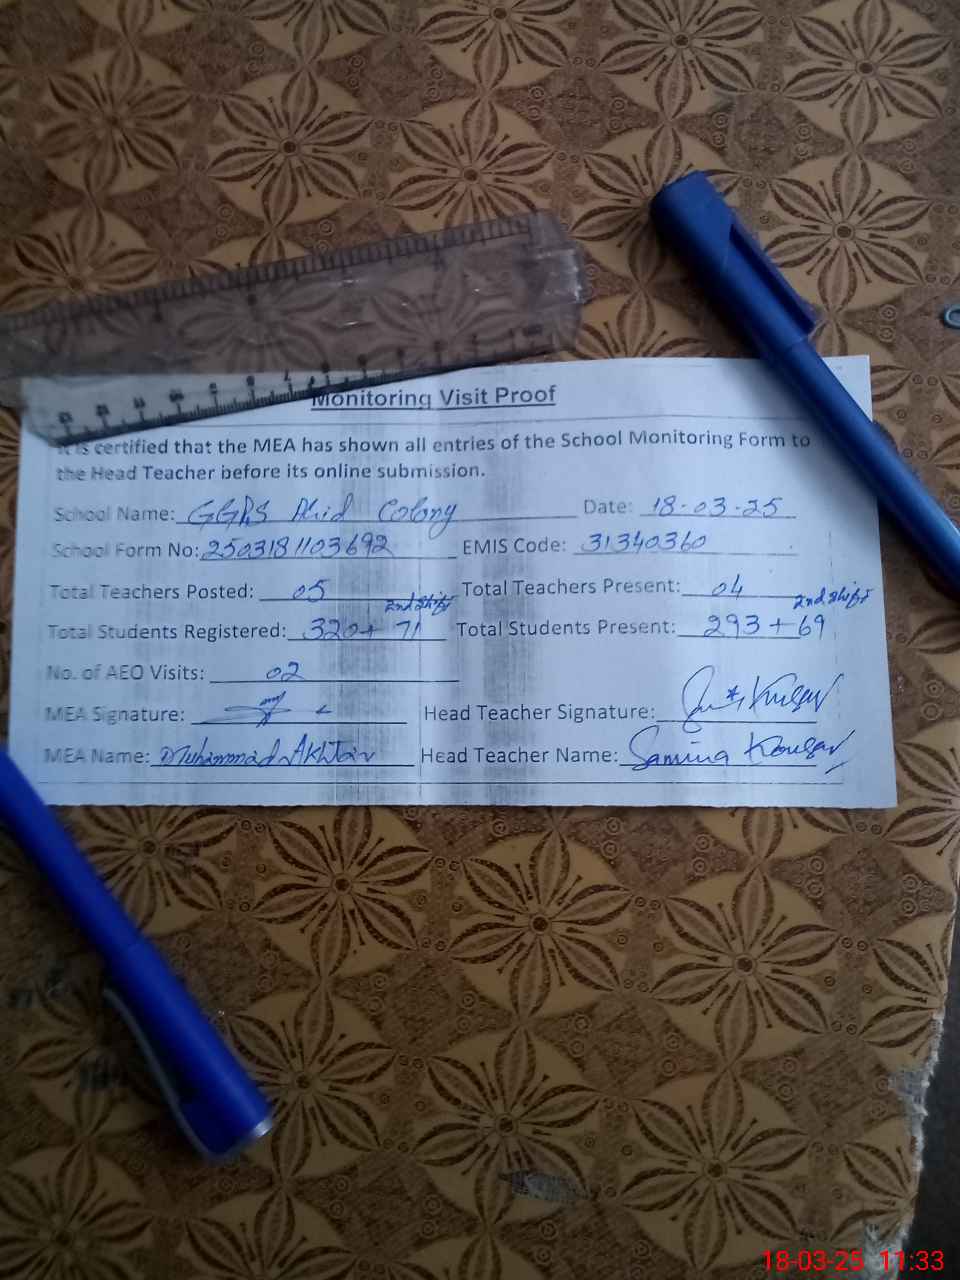 Monitoring Visit Proof
It is certified that the MEA has shown all entries of the School Monitoring Form to
the Head Teacher before its online submission.
School Name: Colony Date: 18-03-25
School Form No: 2503181103692 EMIS Code: 31340360
Total Teachers Posted: 05 Total Teachers Present: 04
2nd Shift 2nd Shift
Total Students Registered: 320+ 71 Total Students Present: 293+69
No. of AEO Visits: 02
MEA Signature: Head Teacher Signature:
MEA Name: Muhammad Akhtar Head Teacher Name: Samina Kousar
18-03-25 11:33